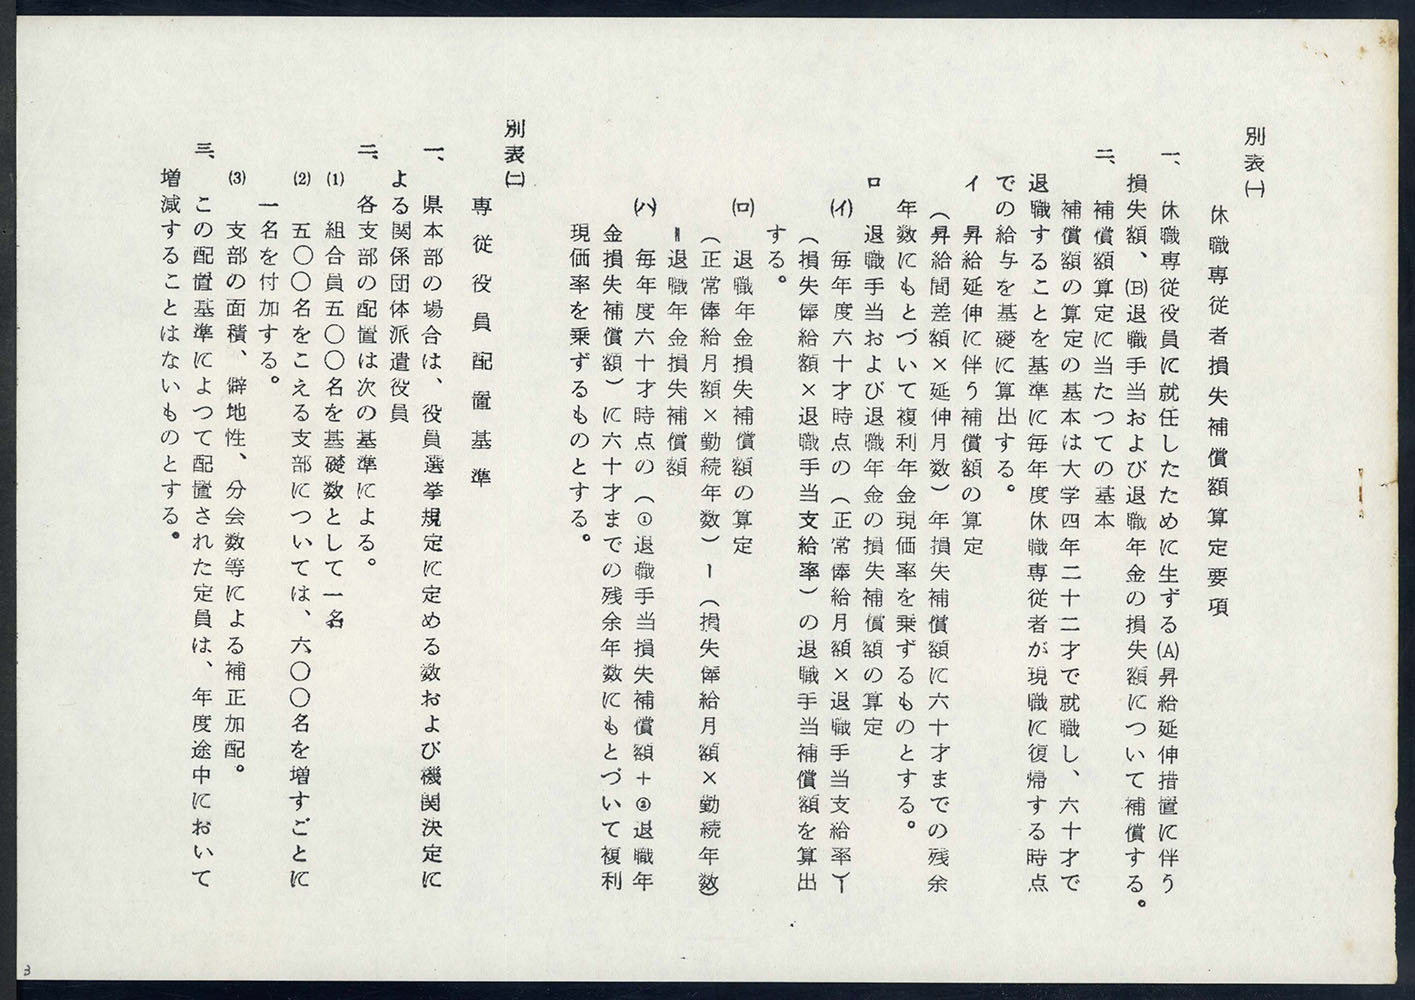 別表㈠
休職専従者損失補償額算定要項
一、休職専従役員に就任したために生ずる(A)昇給延伸措置に伴う
損失額、(B)退職手当および退職年金の損失額について補償する。
二、補償額算定に当たつての基本
補償額の算定の基本は大学四年二十二才で就職し、六十才で
退職することを基準に毎年度休職専従者が現職に復帰する時点
での給与を基礎に算出する。
イ 昇給延伸に伴う補償額の算定
（昇給間差額×延伸月数）年損失補償額に六十才までの残余
年数にもとづいて複利年金現価率を乗ずるものとする。
ロ 退職手当および退職年金の損失補償額の算定
(イ) 毎年度六十才時点の（正常俸給月額×退職手当支給率）ー
（損失俸給額×退職手当支給率）の退職手当補償額を算出
する。
(ロ) 退職年金損失補償額の算定
（正常俸給月額×勤続年数）ー（損失俸給月額×勤続年数）
＝退職年金損失補償額
(ハ) 毎年度六十才時点の（①退職手当損失補償額＋②退職年
金損失補償額）に六十才までの残余年数にもとづいて複利
現価率を乗ずるものとする。
別表㈡
専従役員配置基準
一、県本部の場合は、役員選挙規定に定める数および機関決定に
よる関係団体派遣役員
二、各支部の配置は次の基準による。
(1) 組合員五〇〇名を基礎数として一名
(2) 五〇〇名をこえる支部については、六〇〇名を増すごとに
一名を付加する。
(3) 支部の面積、僻地性、分会数等による補正加配。
三、この配置基準によつて配置された定員は、年度途中において
増減することはないものとする。
3